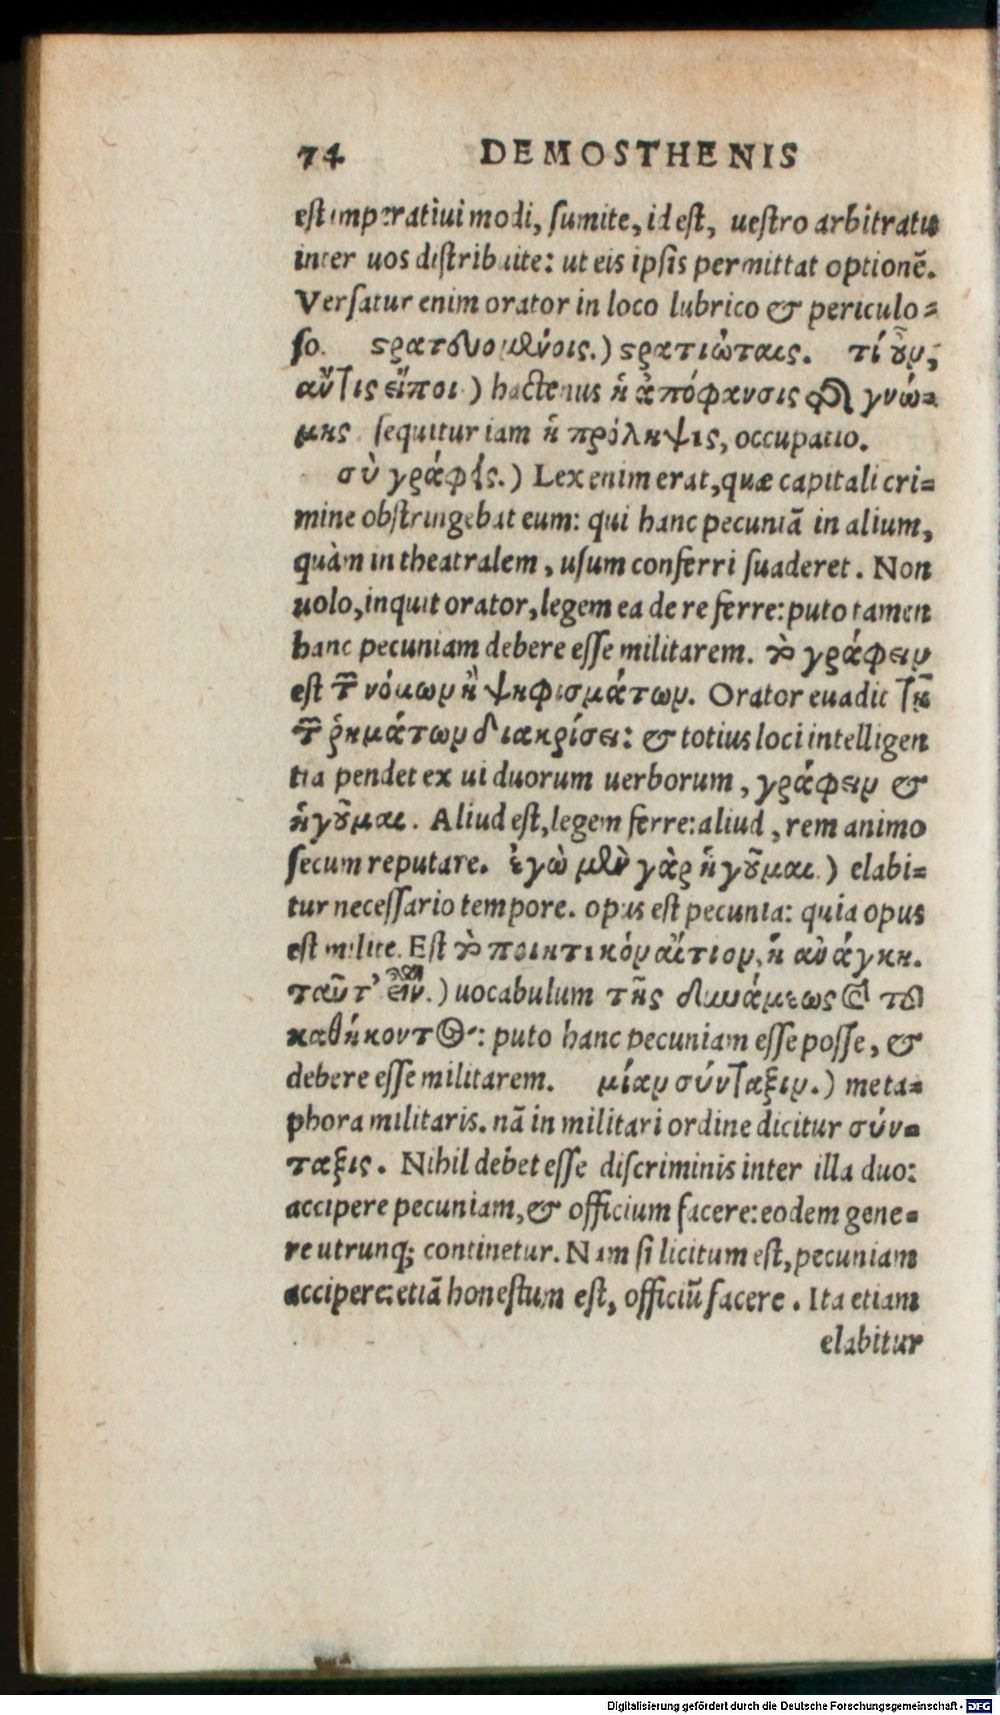 74 DEMOSTHENIS
est imperatiui modi, sumite, id est, uestro arbitratu
inter uos distribuite: ut eis ipsis permittat optionẽ.
Versatur enim orator in loco lubrico & periculo-
so. στρατευομένοις.) στρατιώταις. τί οὖν,
ἄν τις εἴποι) hactenus ἡ ἀπόφανσις τῆς γνώ-
μης. sequitur iam ἡ πρόληψις, occupatio.
σὺ γράφεις.) Lex enim erat, quæ capitali cri-
mine obstringebat eum: qui hanc pecuniã in alium,
quàm in theatralem, usum conferri suaderet. Non
uolo, inquit orator, legem ea de re ferre: puto tamen
hanc pecuniam debere esse militarem. τὸ γράφειν
est τῶν νόμων ἢ ψηφισμάτων. Orator euadit τῇ
τῶν ῥημάτων διακρίσει: & totius loci intelligen
tia pendet ex ui duorum uerborum, γράφειν &
ἡγοῦμαι. Aliud est, legem ferre: aliud, rem animo
secum reputare. ἐγὼ μὲν γὰρ ἡγοῦμαι) elabi-
tur necessario tempore. opus est pecunia: quia opus
est milite. Est τὸ ποιητικὸν αἴτιον, ἡ ἀνάγκη.
ταῦτ' εἶναι.) uocabulum τῆς δυνάμεως καὶ τοῦ
καθήκοντος: puto hanc pecuniam esse posse, &
debere esse militarem. μίαν σύνταξιν.) meta-
phora militaris. nã in militari ordine dicitur σύν-
ταξις. Nihil debet esse discriminis inter illa duo:
accipere pecuniam, & officium facere: eodem gene-
re utrunq; continetur. Nam si licitum est, pecuniam
accipere: etiã honestum est, officiũ facere. Ita etiam
elabitur
Digitalisierung gefördert durch die Deutsche Forschungsgemeinschaft - DFG